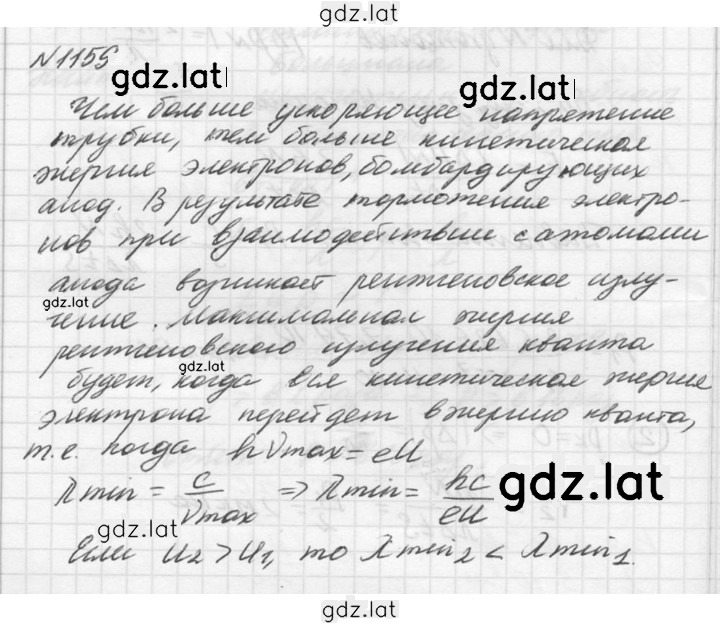 gdz.lat
N1159
gdz.lat
gdz.lat
Чем больше ускоряющее напряжение
трубки, тем больше кинетическая
энергия электронов, бомбардирующих
анод. В результате торможения электро-
нов при взаимодействие с атомами
анода возникает рентгеновское излу-
gdz.lat
чение. Максимальная энергия
рентгеновского излучения кванта
gdz.lat
будет, когда вся кинетическая энергия
электрона перейдет в энергию кванта,
т.е. когда hνmax = eU
λmin = c/νmax => λmin = hc/eU
gdz.lat
gdz.lat
Если U2 > U1, то λmin2 < λmin1.
gdz.lat